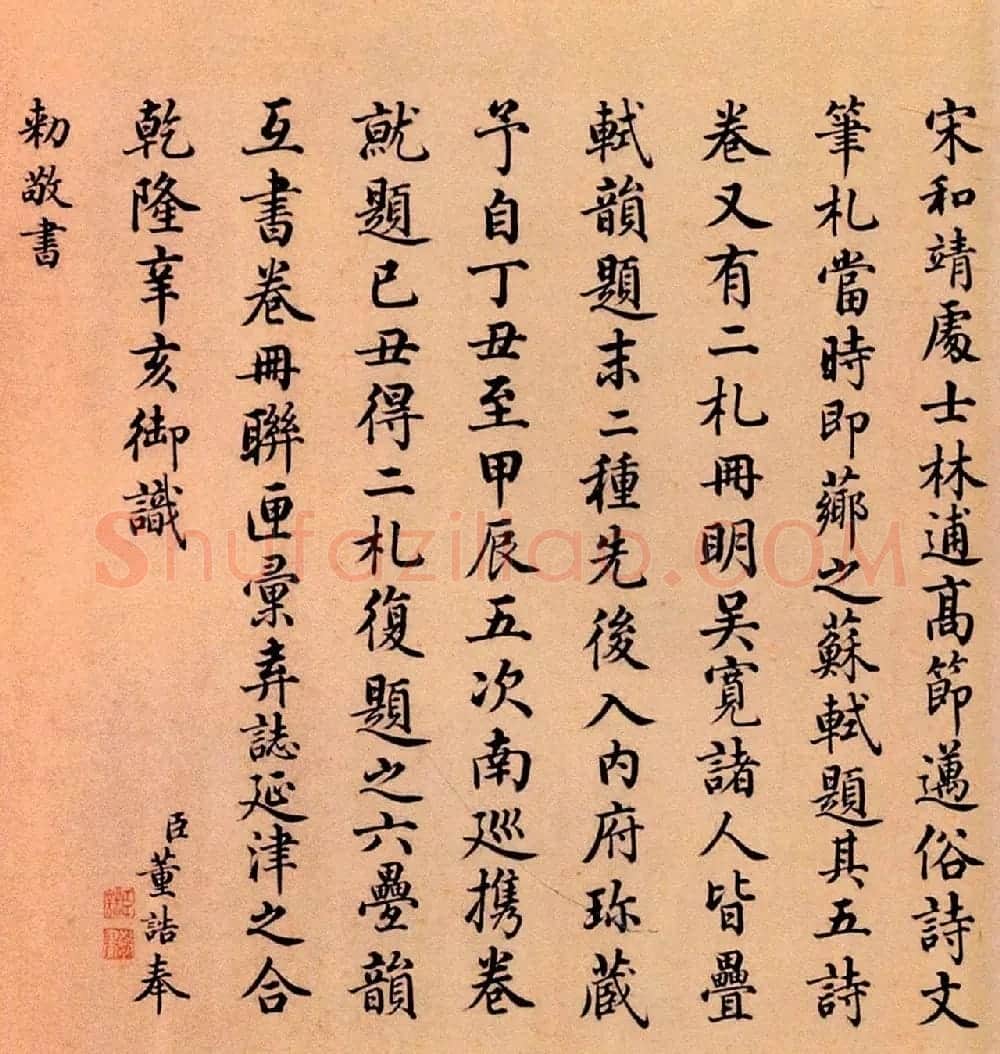 宋和靖處士林逋高節邁俗詩文
筆札當時即薌之蘇軾題其五詩
卷又有二札冊明吳寬諸人皆疊
軾韻題末二種先後入內府珎蔵
予自丁丑至甲辰五次南巡携卷
就題已丑得二札復題之六疊韻
互書卷冊聯匣彙弆誌延津之合
乾隆辛亥御識
臣董誥奉
勅敬書
Shufaziliao.COM